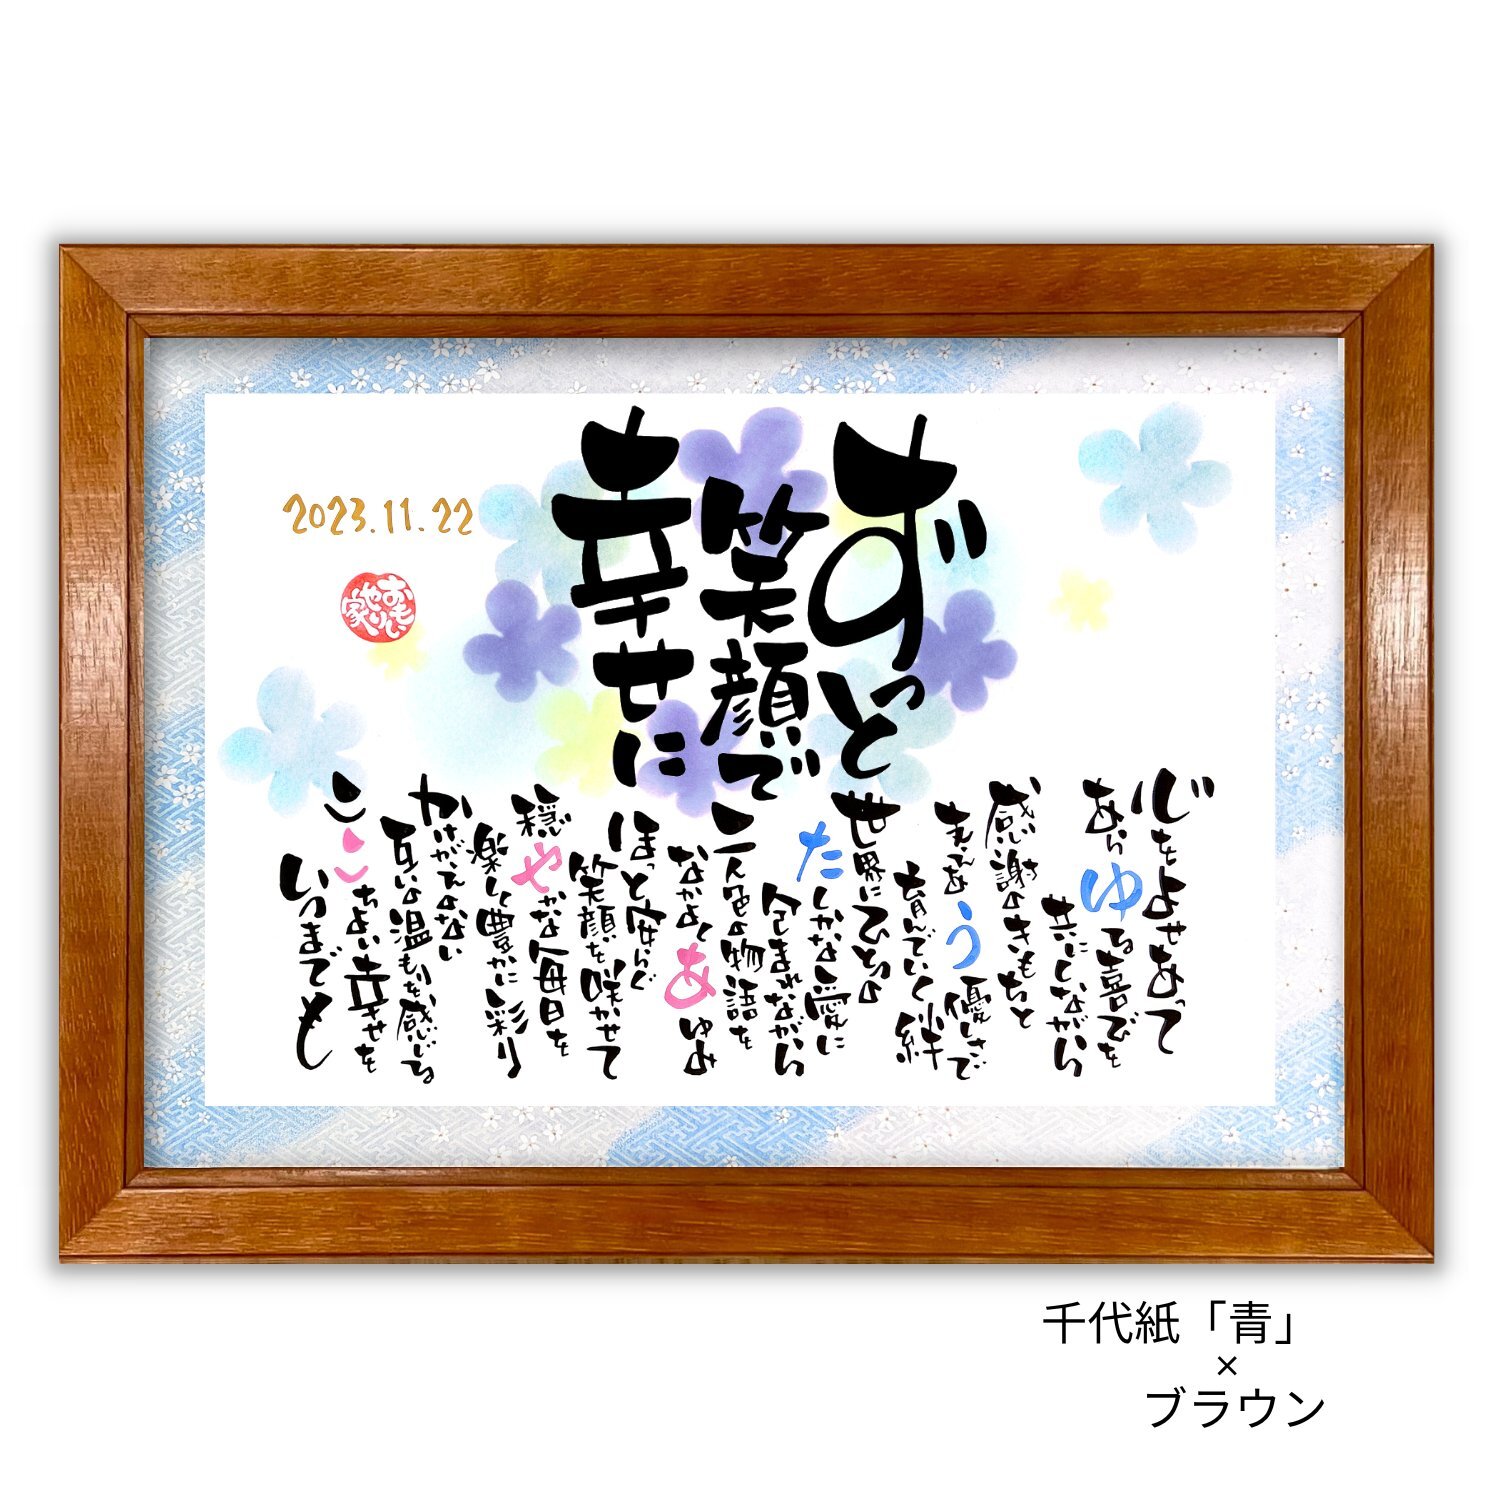 ずっと
笑顔で
幸せに
心をよせあって
あらゆる喜びを
共にしながら
感謝のきもちと
まっすぐ
う優しさで
育んでいく絆
世界にひとつの
たしかな愛に
包まれながら
二人色の物語を
なかよくあゆみ
ほっと安らぐ
笑顔を咲かせて
穏やかな毎日を
楽しく豊かに彩り
かけがえのない
互いの温もりを感じる
ここちよい幸せを
いつまでも
2023.11.22
おもいやり家
千代紙「青」
×
ブラウン